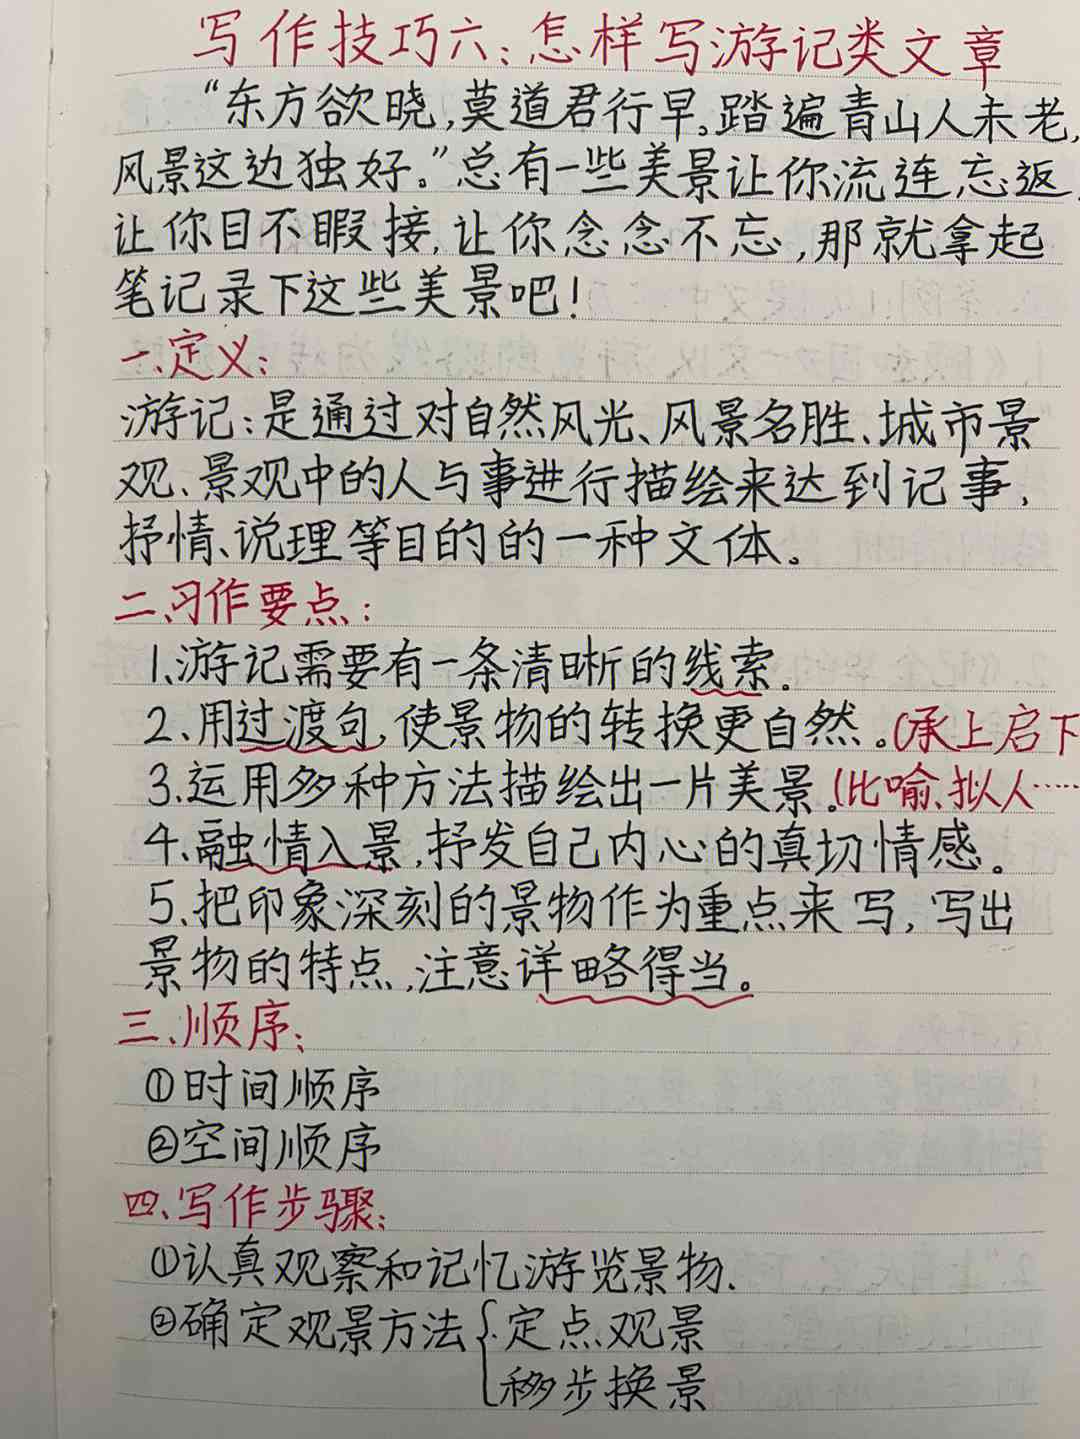 写作技巧六：怎样写游记类文章
“东方欲晓，莫道君行早。踏遍青山人未老，
风景这边独好。”总有一些美景让你流连忘返，
让你目不暇接，让你念念不忘，那就拿起
笔记录下这些美景吧！
一、定义：
游记：是通过对自然风光、风景名胜、城市景
观、景观中的人与事进行描绘来达到记事、
抒情、说理等目的的一种文体。
二、习作要点：
1、游记需要有一条清晰的线索。
2、用过渡句，使景物的转换更自然。（承上启下
3、运用多种方法描绘出一片美景。（比喻、拟人……
4、融情入景，抒发自己内心的真切情感。
5、把印象深刻的景物作为重点来写，写出
景物的特点，注意详略得当。
三、顺序：
①时间顺序
②空间顺序
四、写作步骤：
①认真观察和记忆游览景物.
②确定观景方法{定点观景
移步换景